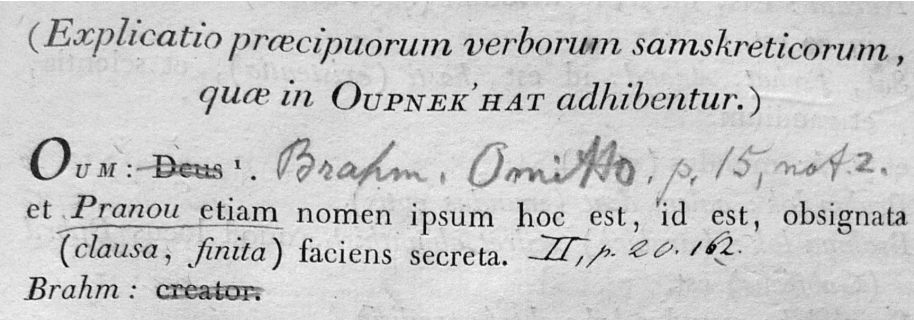 (Explicatio præcipuorum verborum samskreticorum,
quæ in OUPNEK'HAT adhibentur.)
OUM: Deus ¹. Brahm. Omitto. p. 15, not. 2.
et Pranou etiam nomen ipsum hoc est, id est, obsignata
(clausa, finita) faciens secreta. II, p. 20. 162.
Brahm: creator.